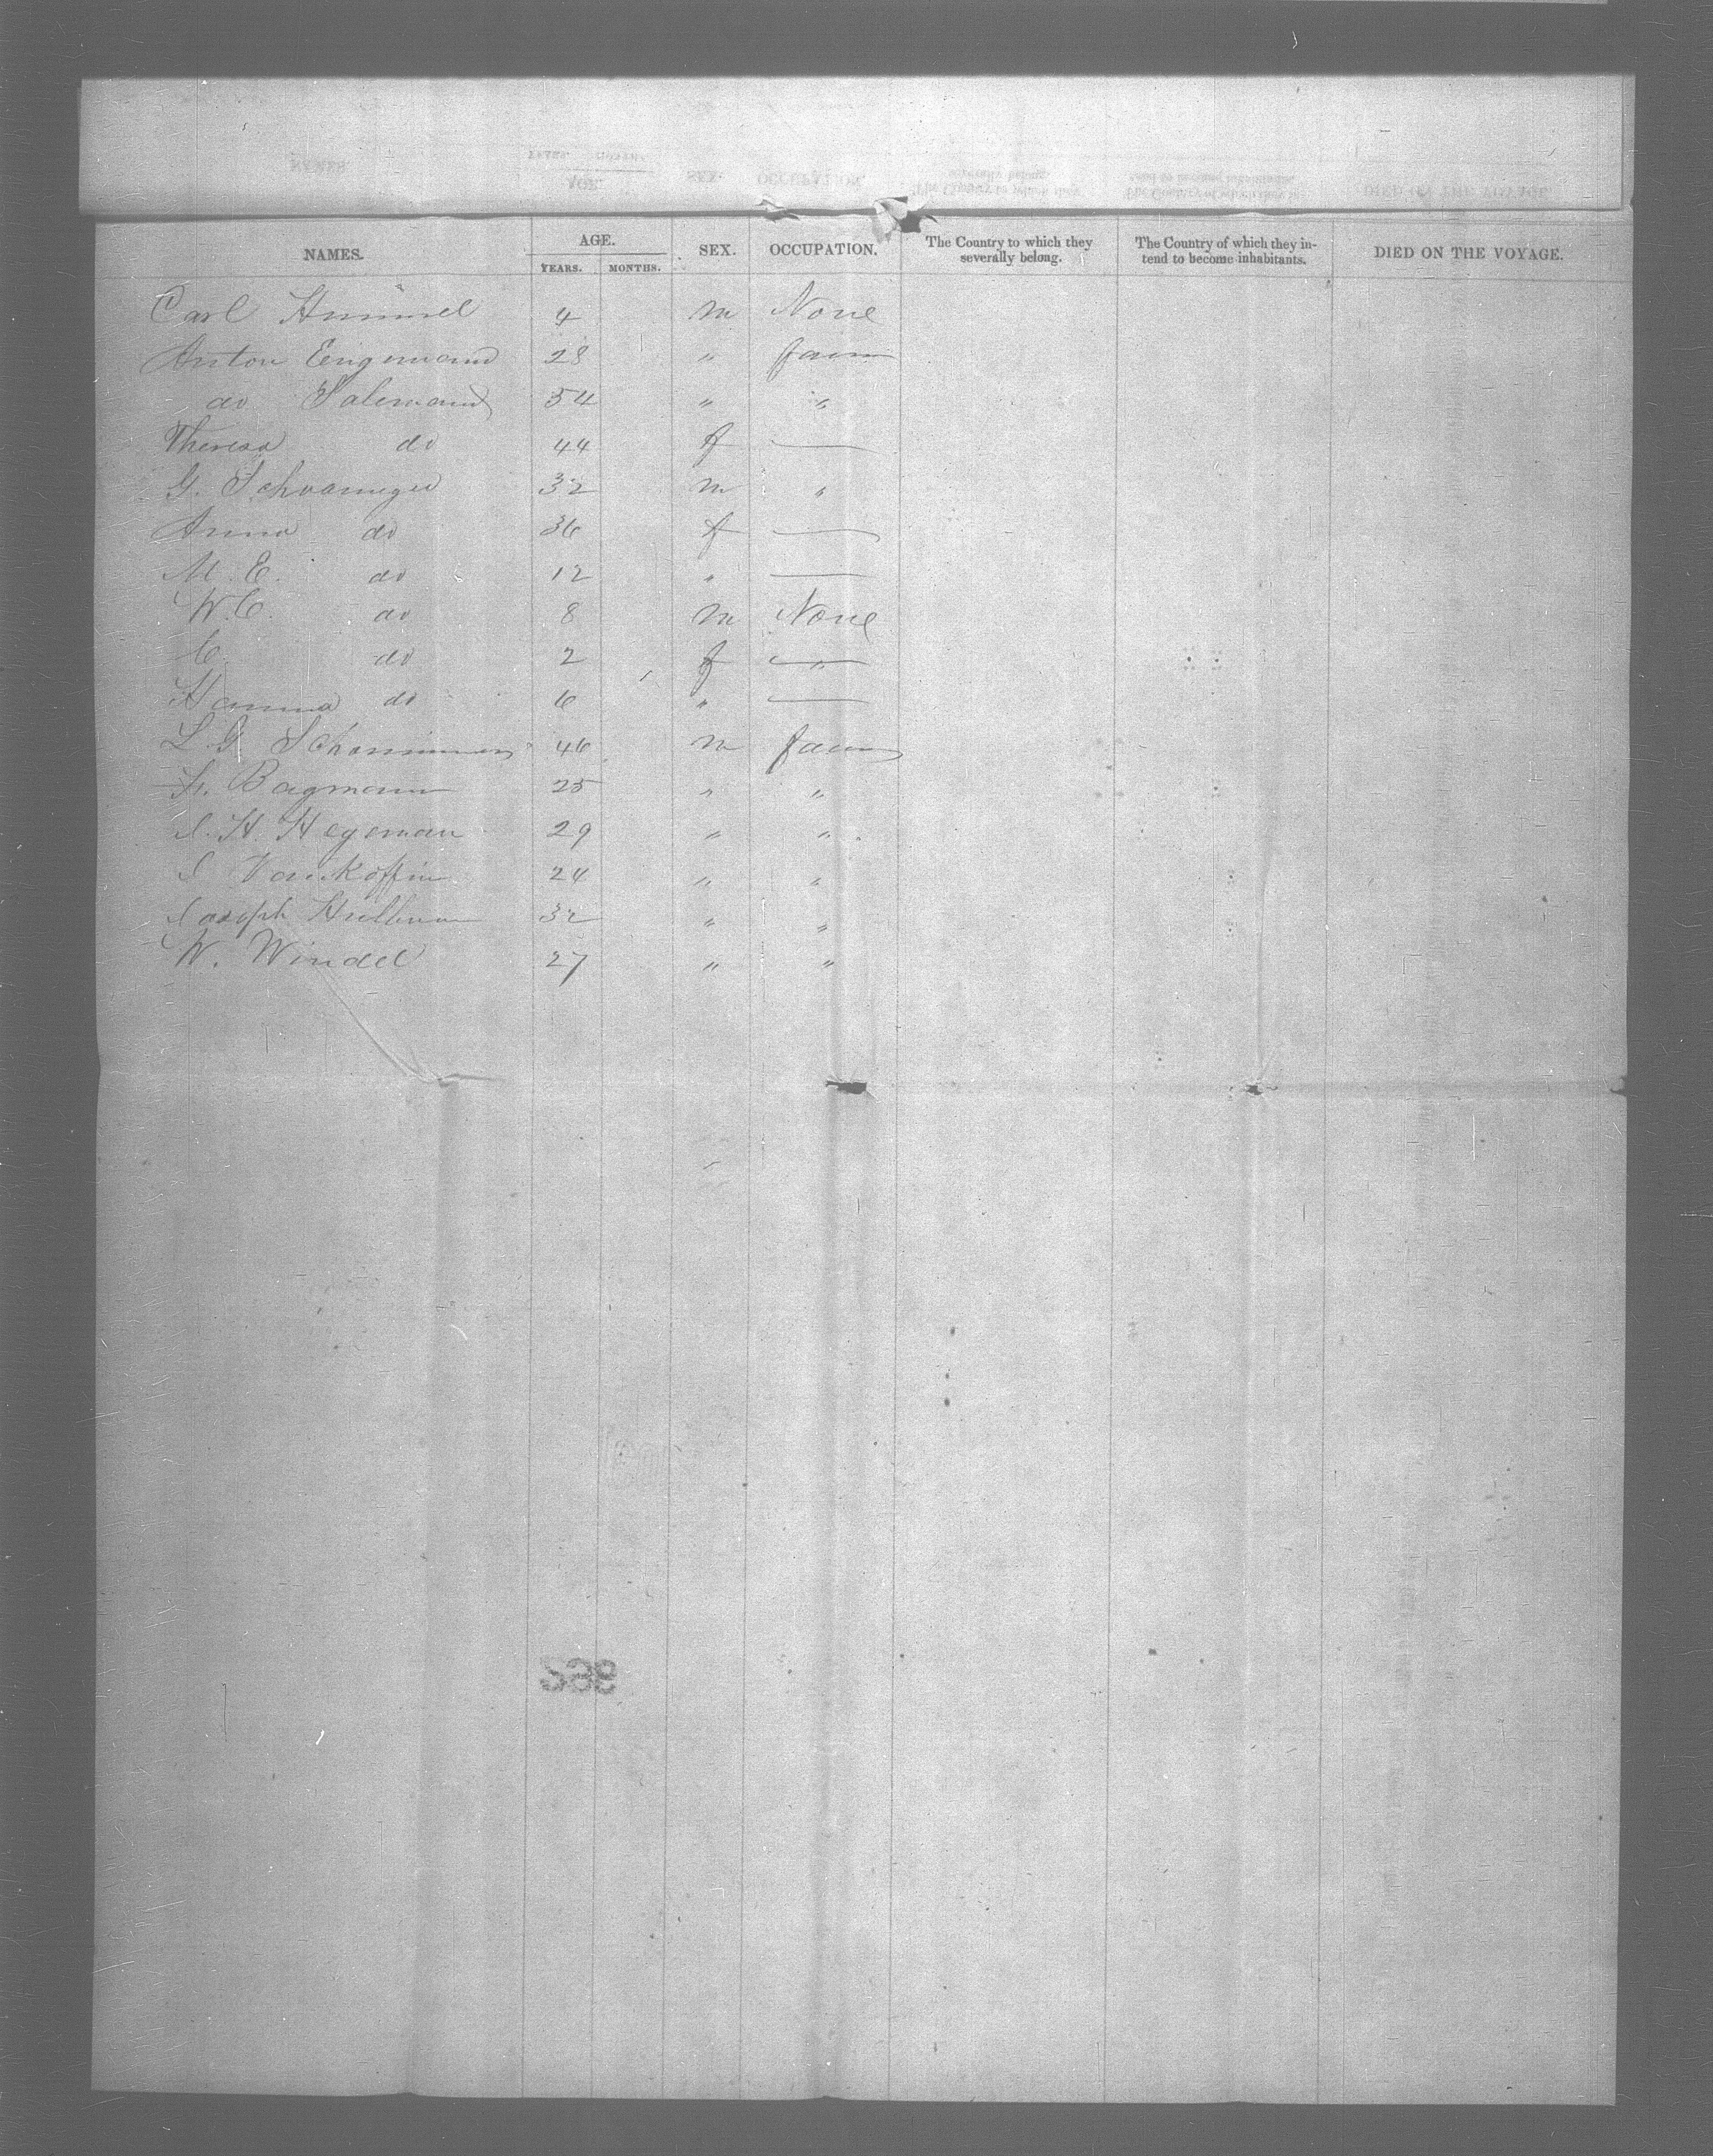 NAMES. AGE. YEARS. MONTHS. SEX. OCCUPATION. The Country to which they severally belong. The Country of which they intend to become inhabitants. DIED ON THE VOYAGE.
Carl Hummel 4 m None
Anton Engemann 28 " farm
do Salemand 54 " "
Theresa do 44 f —
G. 32 m "
Anna do 36 f —
M. E. do 12 " —
W. C. do 8 m None
C. do 2 f "
Hanna do 6 " —
L. G 46 m farm
Fr. Bagmann 25 " "
I. H. Hegeman 29 " "
I Vankoffin 24 " "
Joseph 32 " "
W. Windel 27 " "